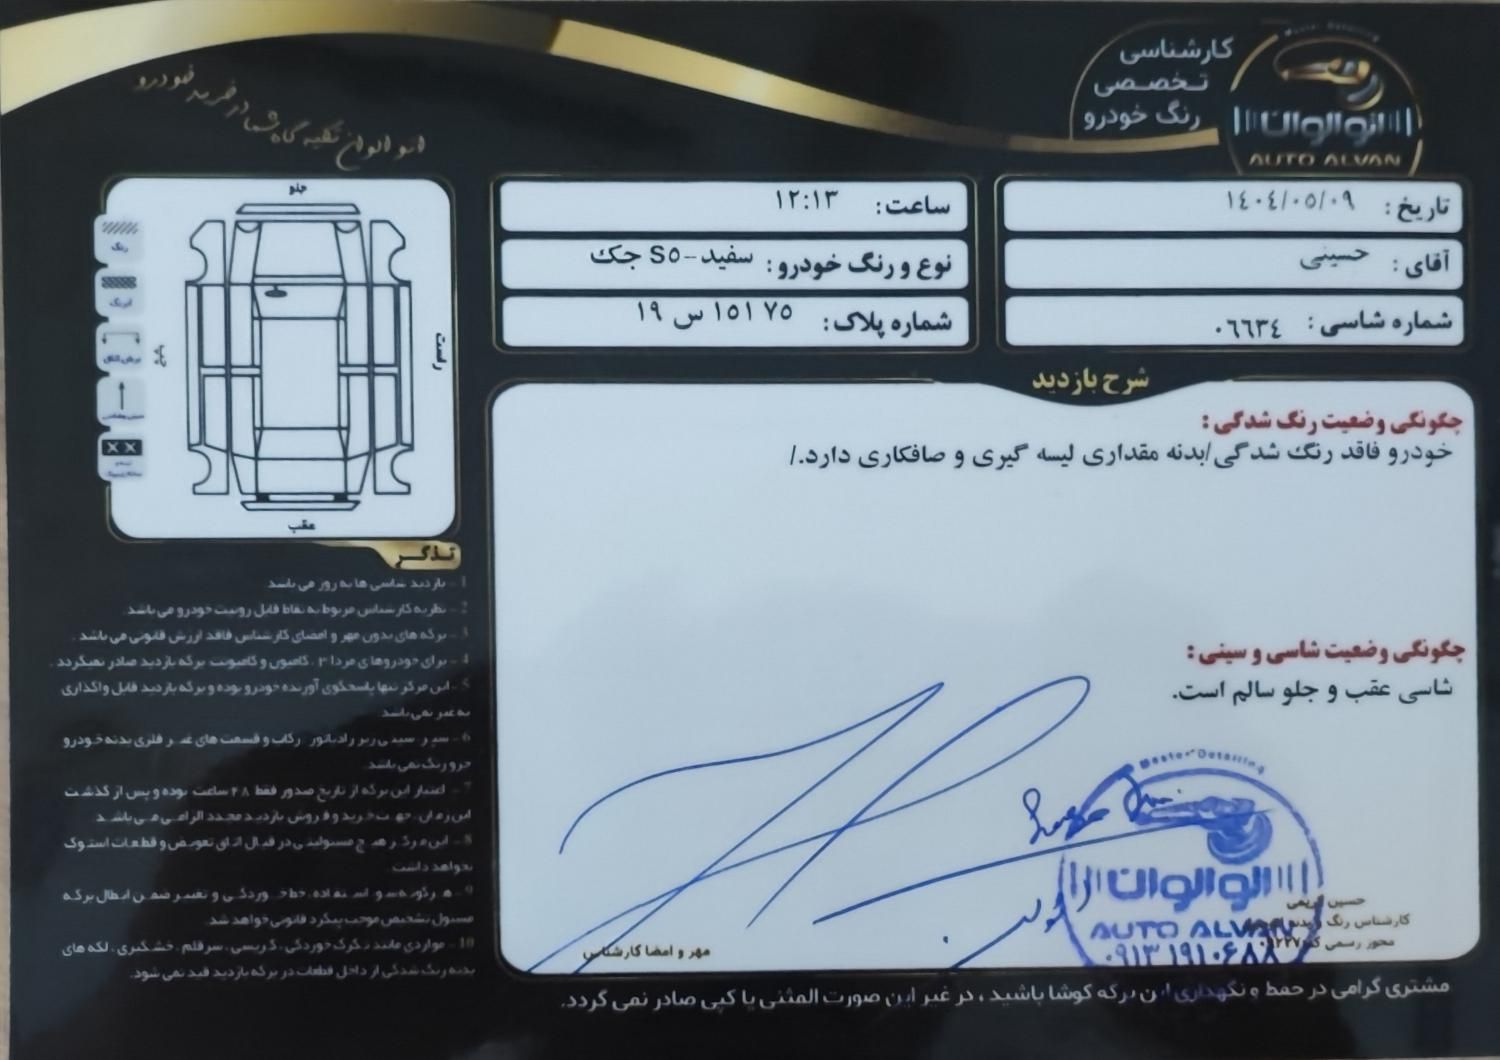 اتو الوان تکیه گاه شما در خرید خودرو
کارشناسی
تخصصی
رنگ خودرو
Master Detailing
اتو الوان
AUTO ALVAN
تاریخ : ۱٤۰٤/۰٥/۰۹
آقای : حسینی
شماره شاسی : ۰٦٦۳٤
ساعت: ۱۲:۱۳
نوع و رنگ خودرو : سفید-S٥ جک
شماره پلاک: ۷٥ ۱٥۱ س ۱۹
جلو
راست
چپ
عقب
رنگ
لیرنگ
برش اتاق
شرح بازدید
چگونگی وضعیت رنگ شدگی :
خودرو فاقد رنگ شدگی/بدنه مقداری لیسه گیری و صافکاری دارد./
چگونگی وضعیت شاسی و سینی :
شاسی عقب و جلو سالم است.
تذکر
1 - بازدید شاسی ها به روز می باشد
2 - نظریه کارشناس مربوط به نقاط قابل رویت خودرو می باشد.
3 - برگه های بدون مهر و امضای کارشناس فاقد ارزش قانونی می باشد .
4 - برای خودروهای مزدا ۳ ، کامیون و کامیونت برگه بازدید صادر نمیگردد .
5 - این مرکز تنها پاسخگوی آورنده خودرو بوده و برگه بازدید قابل واگذاری
به غیر نمی باشد
6 - سپر ، سینی زیر رادیاتور ، رکاب و قسمت های غیر فلزی بدنه خودرو
جزو رنگ نمی باشد.
7 - اعتبار این برگه از تاریخ صدور فقط ۴۸ ساعت بوده و پس از گذشت
این زمان، جهت خرید و فروش بازدید مجدد الزامی می باشد.
8 - این مرکز هیچ مسئولیتی در قبال اتاق تعویض و قطعات استوک
نخواهد داشت.
9 - هرگونه سو استفاده، خط خوردگی و تغییر ضمن ابطال برگه
مسئول تشخیص موجب پیگرد قانونی خواهد شد.
10 - مواردی مانند تگرگ خوردگی ، گریسی ، سرقلم ، خشگیری ، لکه های
بدنه رنگ شدگی از داخل قطعات در برگه بازدید قید نمی شود.
Master Detailing
الوالوان
AUTO ALVAN
۰۹۱۳ ۱۹۱۰۶۸۸
حسین کریمی
کارشناس رنگ و بدنه
مجوز رسمی کد
مهر و امضا کارشناس
مشتری گرامی در حفظ و نگهداری این برگه کوشا باشید ، در غیر این صورت المثنی یا کپی صادر نمی گردد.